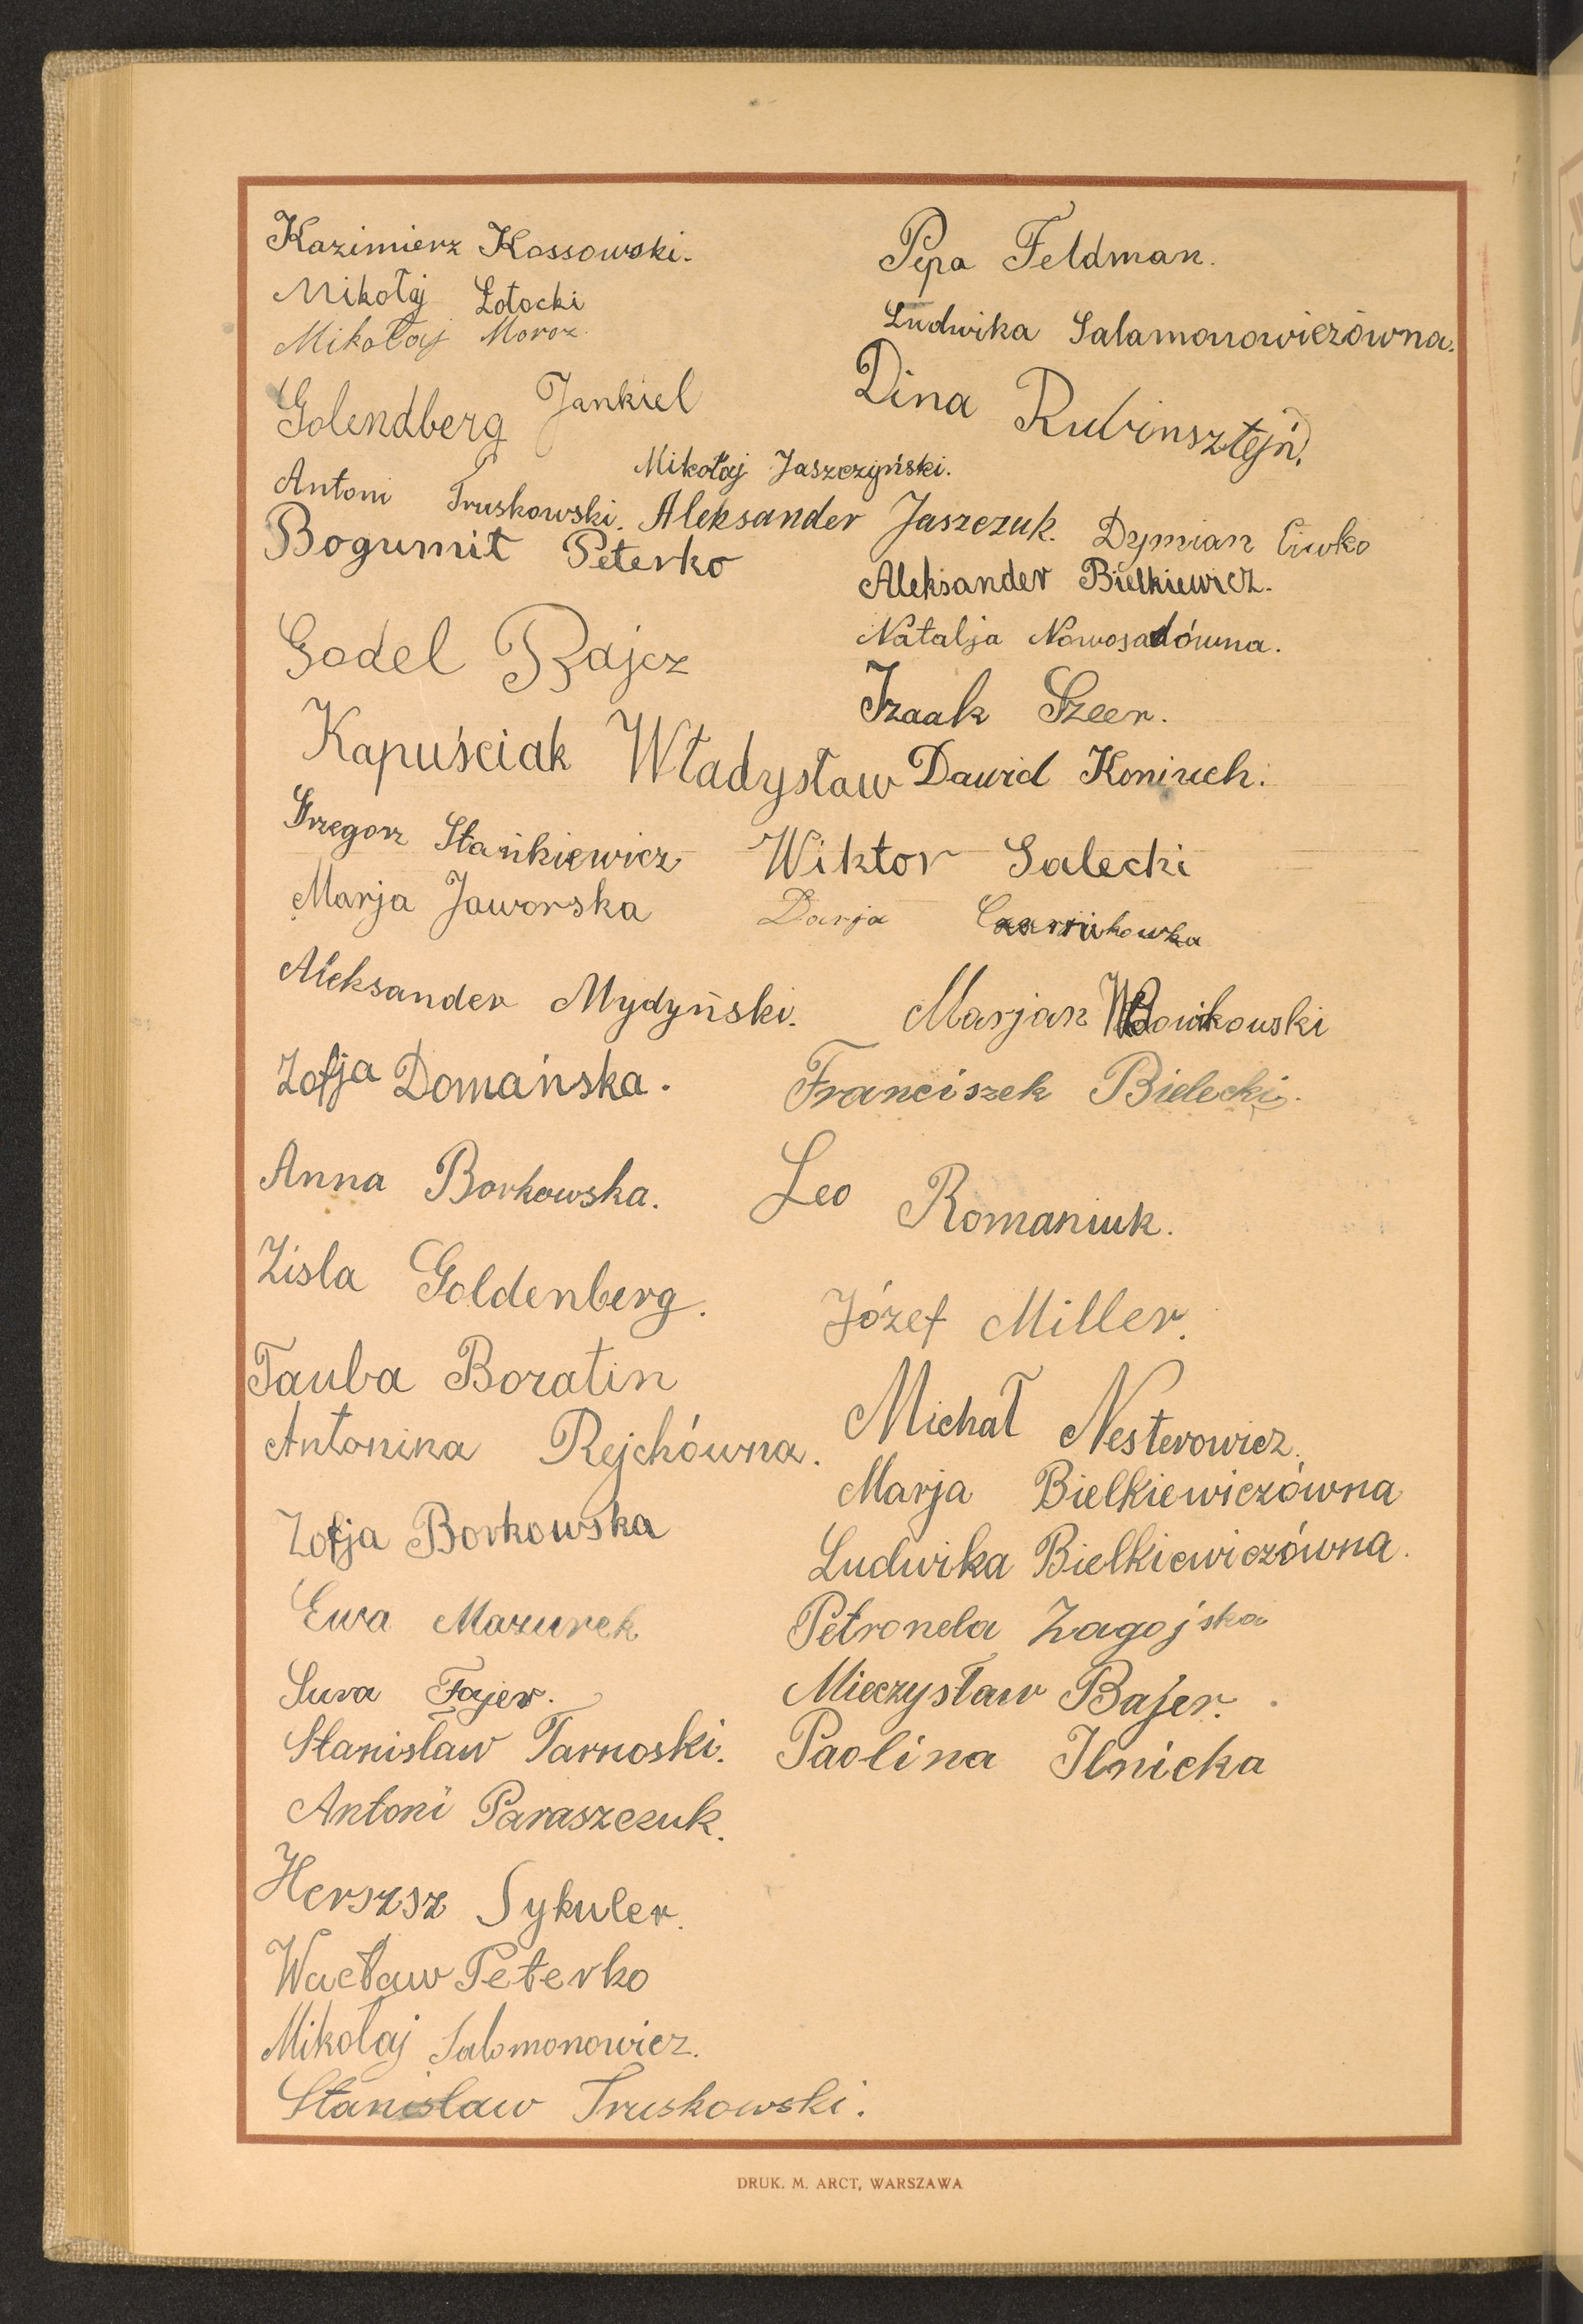 Kazimierz Kossowski.
Mikołaj Łotocki
Mikołaj Moroz.
Golendberg Jankiel
Antoni Truskowski.
Bogumił Peterko
Godel Rajcz
Kapuściak Władysław
Grzegorz Stańkiewicz
Marja Jaworska
Aleksander Mydyński.
Zofja Domańska.
Anna Borkowska.
Zisla Goldenberg.
Tauba Boratin
Antonina Rejchówna.
Zofja Borkowska
Ewa Mazurek
Sura Fajer.
Stanisław Tarnoski.
Antoni Paraszczuk.
Herszsz Sykuler.
Wacław Peterko
Mikołaj Salomonowicz.
Stanisław Truskowski.
Pepa Feldman.
Ludwika Salamonowiczówna.
Dina Rubinsztejn.
Mikołaj Jaszczyński.
Aleksander Jaszczuk.
Dymian
Aleksander Bielkiewicz.
Natalja Nowosadówna.
Izaak Szeer.
Dawid Koniuch.
Wiktor Salecki
Darja
Marjan
Franciszek Bielecki.
Leo Romaniuk.
Józef Miller.
Michał Nesterowicz.
Marja Bielkiewiczówna
Ludwika Bielkiewiczówna.
Petronela Zagojska
Mieczysław Bajer.
Paolina Ilnicka
DRUK. M. ARCT, WARSZAWA